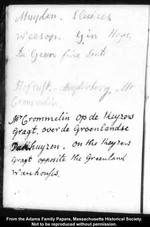 Muyden. Sluices
Weesop. Gin Hope.
de Groen five
Hofrust. Muyderberg. Mr
Crommelin.
Mr Crommelin op de Keyzers
gragt, over de Groenlandse
Pakhuyzen. on the Keyzers
gragt opposite the Greenland
Warehouses.
From the Adams Family Papers, Massachusetts Historical Society.
Not to be reproduced without permission.